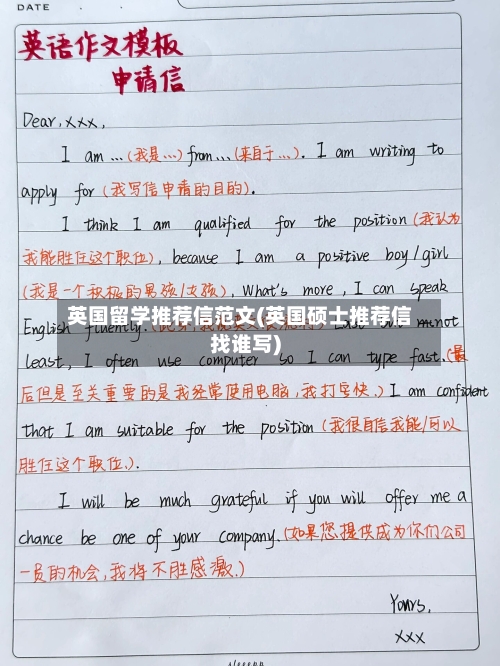 DATE
英语作文模板
申请信
Dear, xxx,
I am ... (我是...) from ... (来自于 ...). I am writing to
apply for (我写信申请的目的).
I think I am qualified for the position (我认为
我能胜任这个职位), because I am a positive boy/girl
(我是一个积极的男孩/女孩), What's more, I can speak
英国留学推荐信范文(英国硕士推荐信
找谁写)
English fluently. Last but not
least, I often use computer so I can type fast. (最
后但是至关重要的是我经常使用电脑,我打字快.) I am confident
that I am suitable for the position (我很自信我能/可以
胜任这个职位.).
I will be much grateful if you will offer me a
chance be one of your company. (如果您提供成为你们公司
一员的机会,我将不胜感激.)
Yours,
xxx